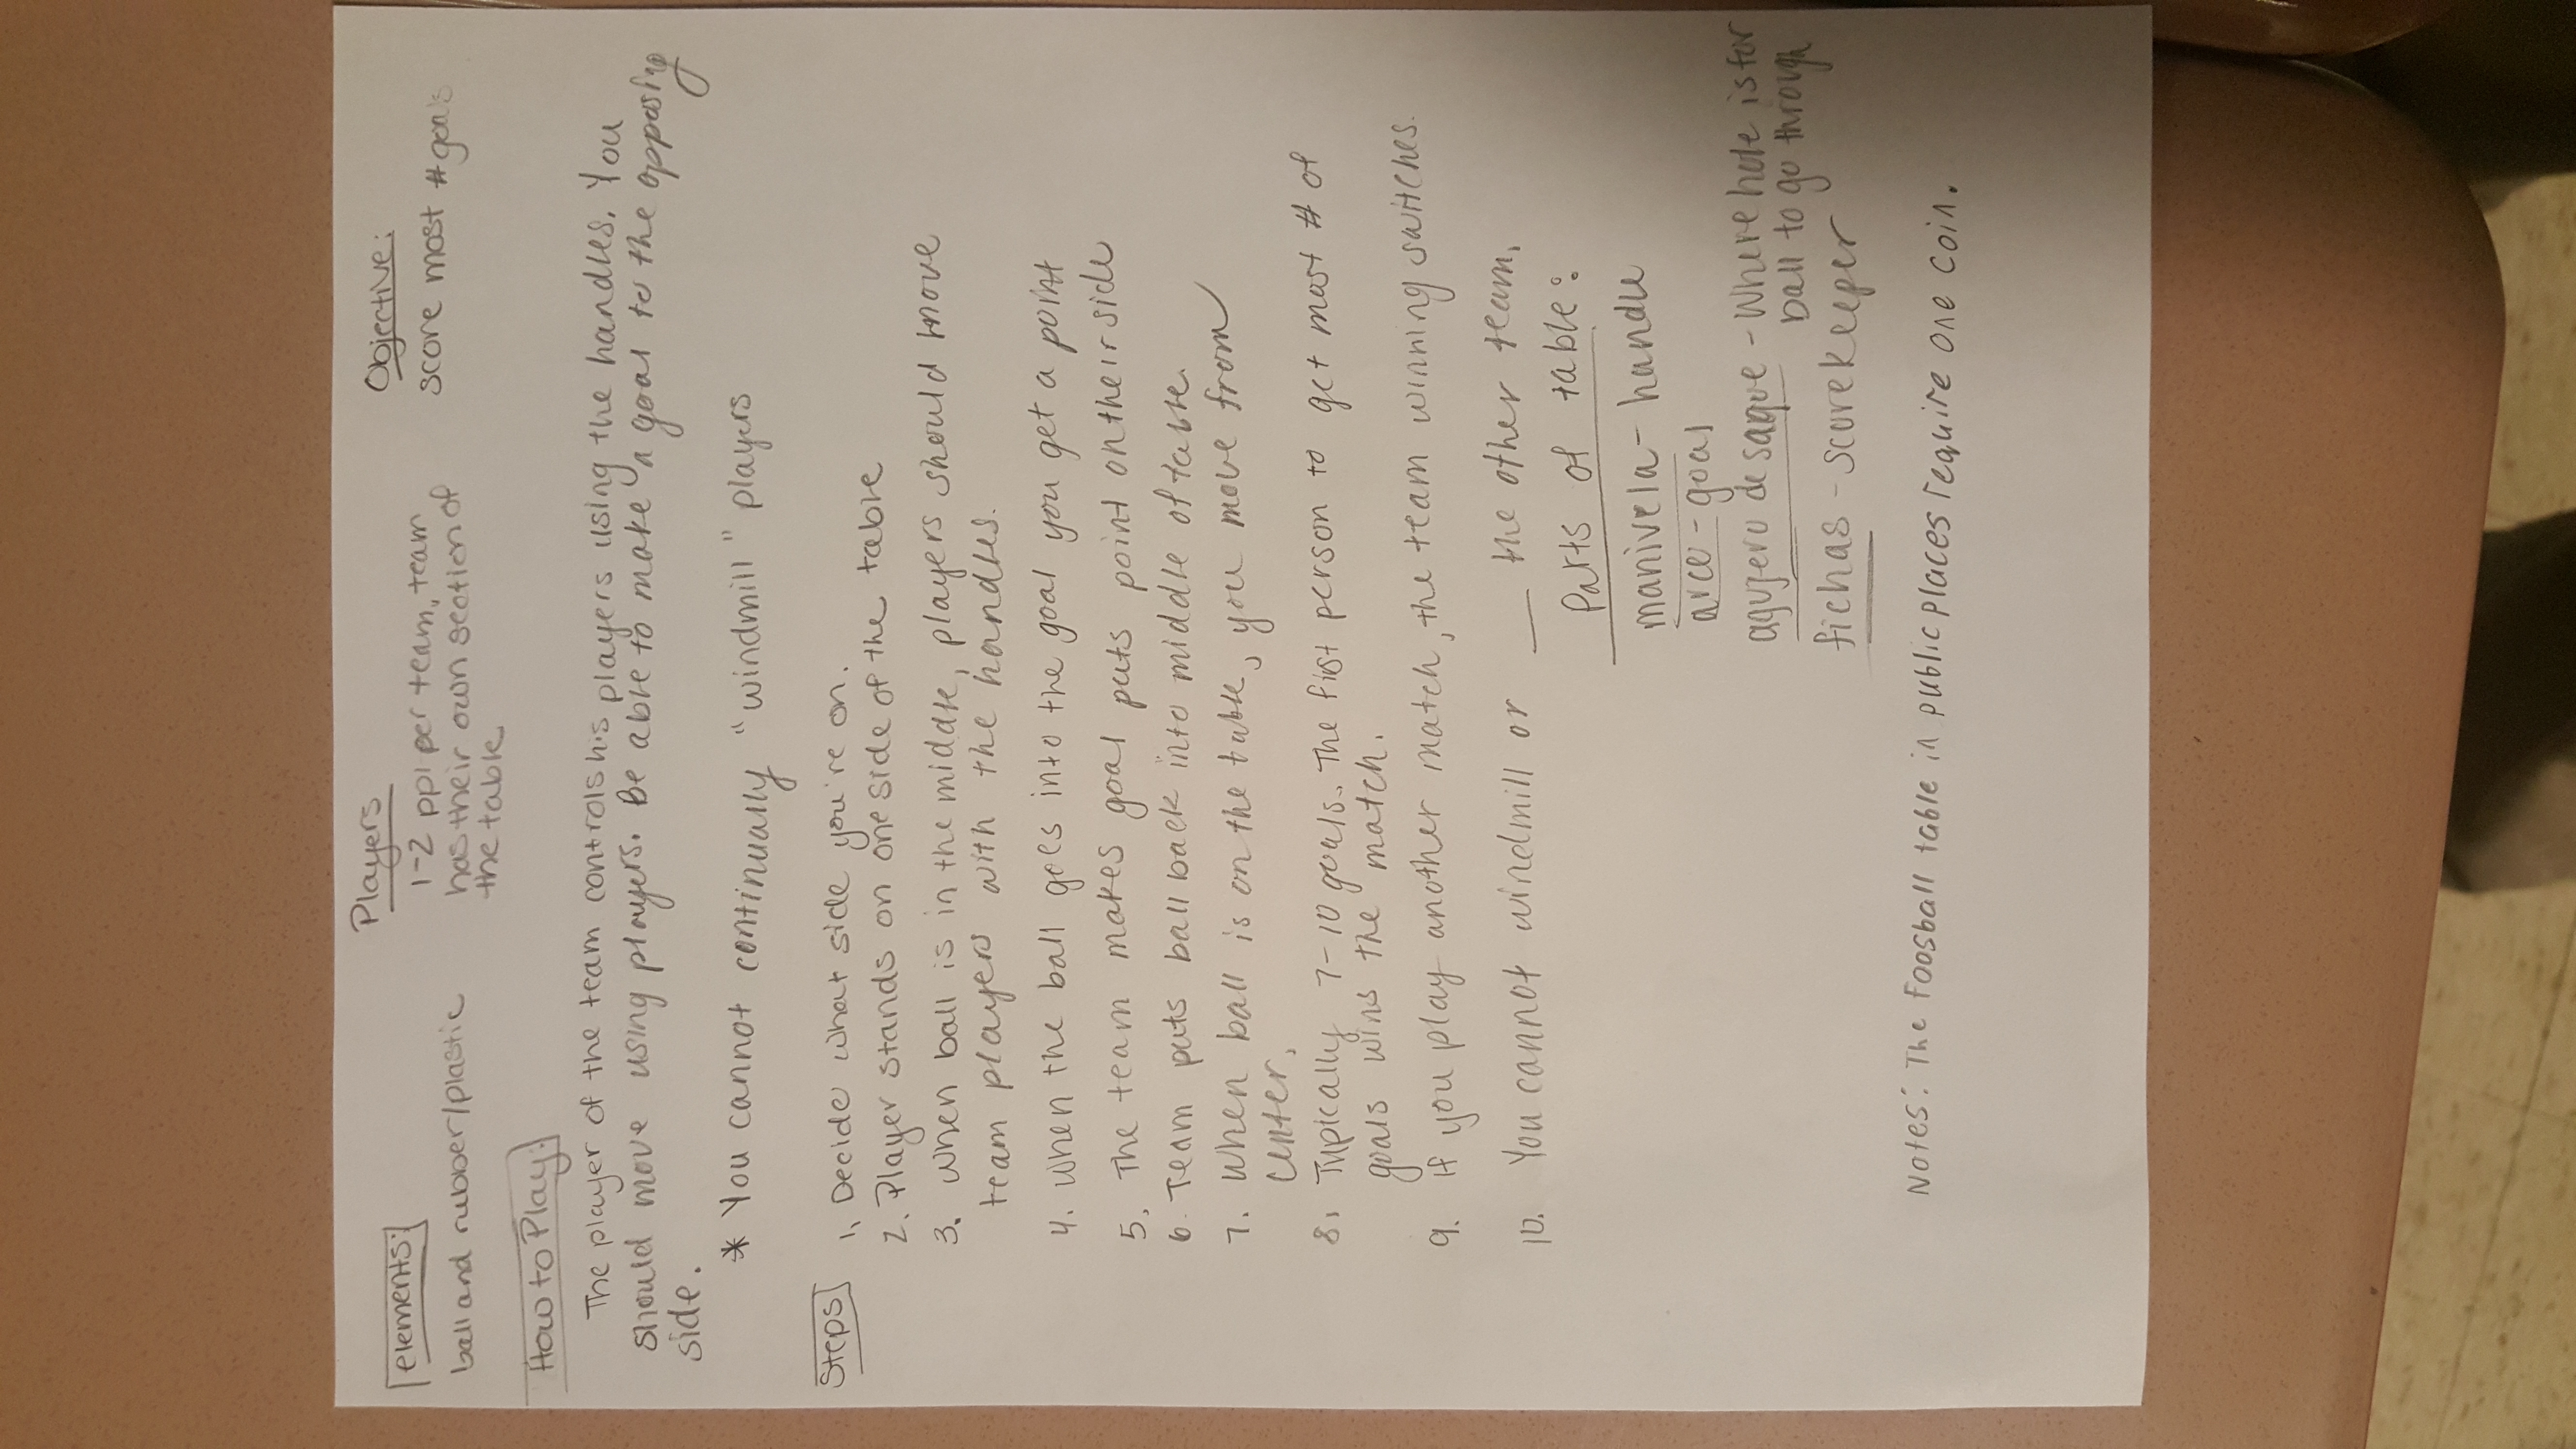 elements:
ball and rubber/plastic
Players
1-2 ppl per team, team
has their own section of
the table
Objective:
score most # goals
How to Play:
The player of the team controls his players using the handles. You
should move using players. Be able to make a goal to the opposing
side.
* You cannot continually "windmill" players
Steps
1. Decide what side you're on.
2. Player stands on one side of the table
3. when ball is in the middle, players should move
team players with the handles.
4. when the ball goes into the goal you get a point
5. The team makes goal puts point on their side
6. Team puts ball back into middle of table.
7. When ball is on the table, you move from
center.
8. Typically 7-10 goals. The first person to get most # of
goals wins the match.
9. If you play another match, the team winning switches.
10. You cannot windmill or ___ the other team.
Parts of table:
manivela - handle
arco - goal
agujero de saque - Where hole is for
ball to go through
fichas - scorekeeper
Notes: The Foosball table in public places require one coin.